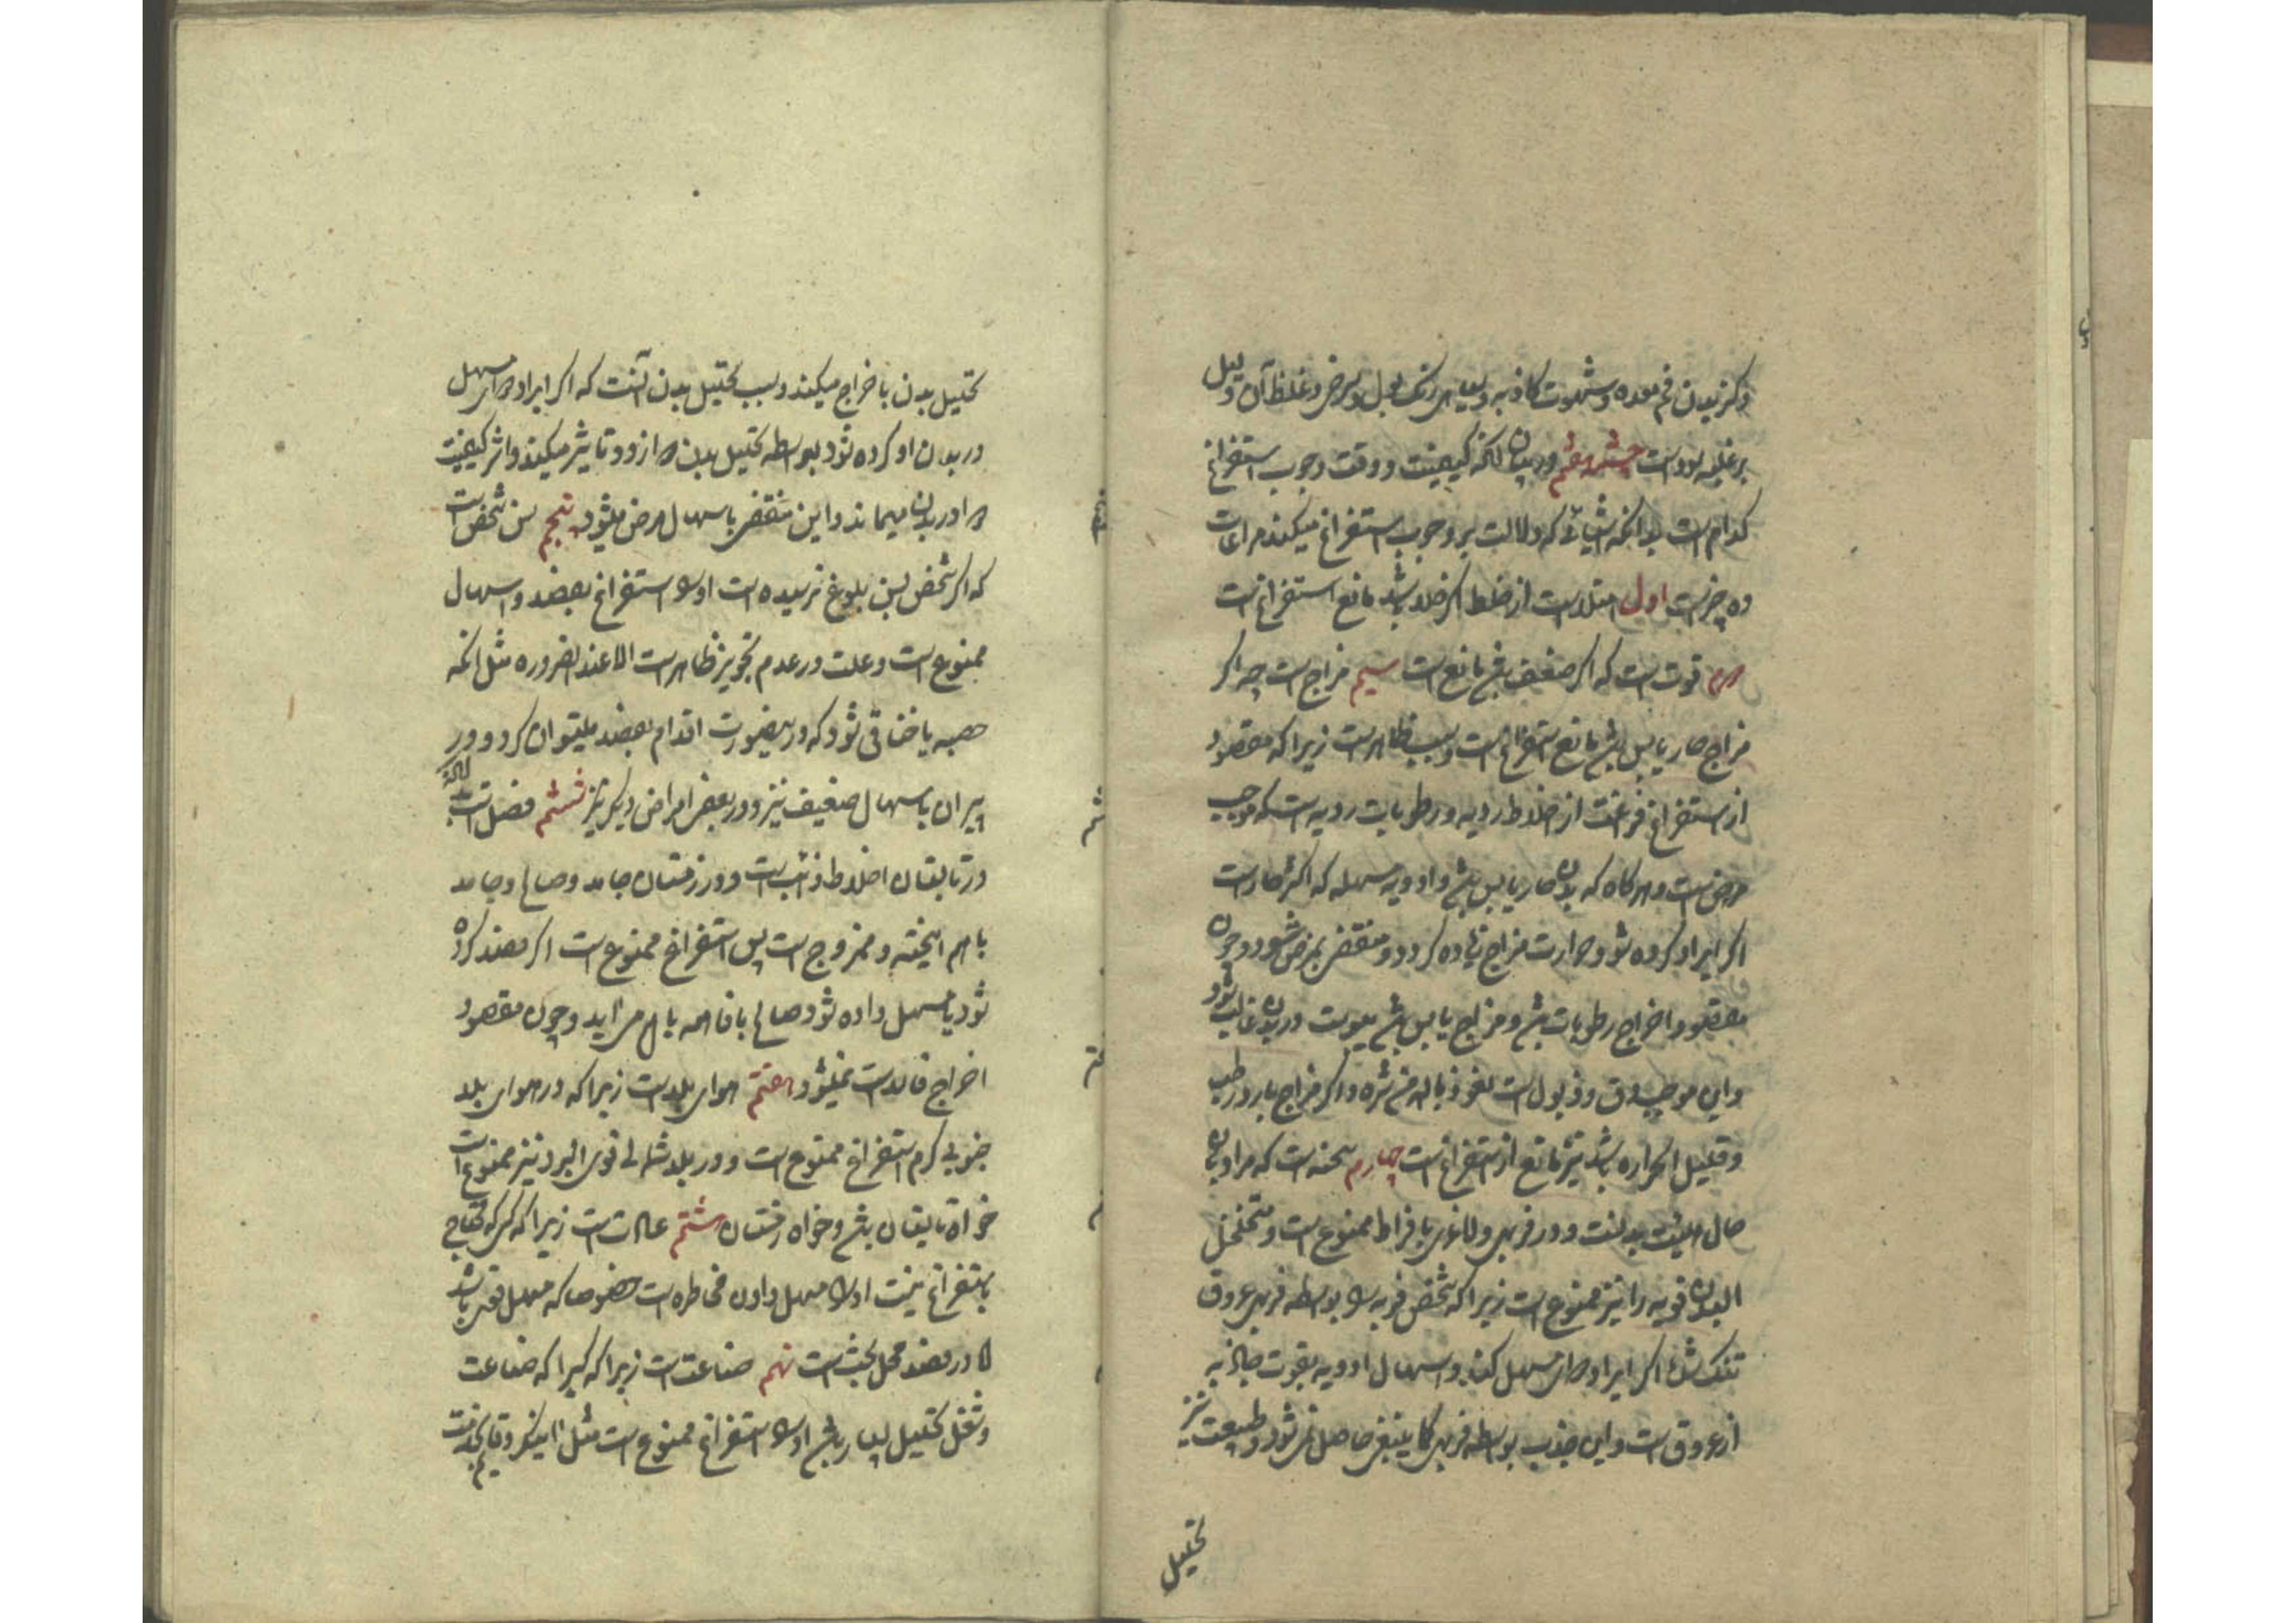 و کز یدن فم معده و شهوت کاذبه و سیاهی رنگ بول و برص و غلظ آن دلیل
بر غلبه سوداست چشمه هشتم در بیان انکه کیفیت و وقت وجوب استفراغ
کدام است بدانکه اشیائی که دلالت بر وجوب استفراغ میکند مراعات
ده چیزست اول امتلاست از خلط اکر خلا باشد مانع استفراغ است
دوم قوت است که اکر ضعیف باشد مانع است سیم مزاج است چه اکر
مزاج حار یابس باشد مانع استفراغ است و سبب ظاهرست زیرا که مقصود
از استفراغ فراغت از اخلاط ردیه و رطوبات ردیه است که موجب
مرض است و هر کاه که بدن حار یابس باشد و ادویه مسهله که اکثر حارست
اکر ایراد کرده شود حرارت مزاج زیاده کردد و منقضی بمرض شود و چون
مقصود اخراج رطوبات باشد و مزاج یابس باشد یبوست در بدن غالب شود
و این موجب دق و ذبول است نعوذ بالله من شره و اکر مزاج بارد رطب
و قلیل الحراره باشد نیز مانع از استفراغ است چهارم سحنه است که مراد بآن
حال هیئت بدنست و در فربهی و لاغری بافراط ممنوع است و متخلخل
البدن فربه را نیز ممنوع است زیرا که شخص فربه را بواسطه فربهی عروق
تنک شده اکر ایراد دوای مسهل کند و اسهال ادویه بقوت جاذبه
از عروق است و این جذب بواسطه فربهی کما ینبغی حاصل نمی شود و طبیعت نیز
تحلیل
تحلیل بدن با خراج میکند و سبب تحلیل بدن آنست که اکر ایراد دوای مسهل
در بدن او کرده شود بواسطه تحلیل بدن دوا زود تاثیر میکند و اثر کیفیت
دوا در بدن میماند و این منقضی باسهال مرض میشود پنجم سن شخص است
که اکر شخص بسن بلوغ نرسیده است او را استفراغ بفصد و اسهال
ممنوع است و علت در عدم تجویز ظاهرست الا عند الضروره مثل انکه
حصبه یا خناقی شود که در اینصورت اقدام بفصد میتوان کرد و در
پیران باسهال ضعیف نیز و در بعض امراض دیکر نیز ششم فصل است
در تابستان اخلاط ذائب است و در زمستان جامد و صالح و جامد
با هم امیخته و ممزوج است پس استفراغ ممنوع است اکر فصد کرده
شود یا مسهل داده شود صالح با فاسد با هم می آید و چون مقصود
اخراج فاسدست نمیشود هفتم هوای بلدست زیرا که در هوای بلد
جنوبی کرم استفراغ ممنوع است و در بلد شمالی قوی البرد نیز ممنوع است
خواه تابستان باشد و خواه زمستان هشتم عادت است زیرا که کسی که محتاج
باستفراغ نیست او را مسهل دادن مخاطره است خصوصا که مسهل قوی باشد
اما در فصد محل بحث است نهم صناعتست زیرا که کیرا که صناعت
و شغل تحلیل بسیار باشد او را استفراغ ممنوع است مثل اهنکر و قایم بخدمت